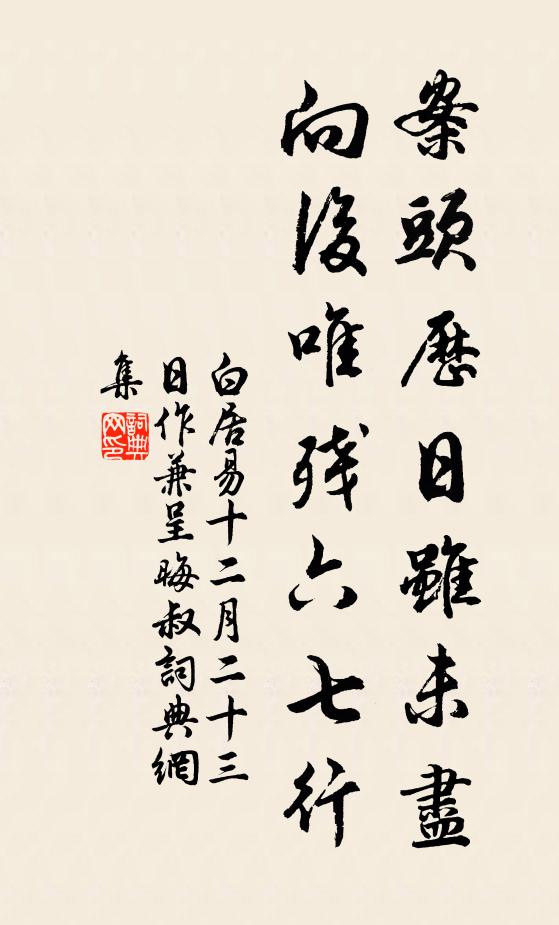 案頭曆日雖未盡
向後唯残六七行
白居易十二月二十三
日作兼呈晦叔詞典網
集
詞典网印